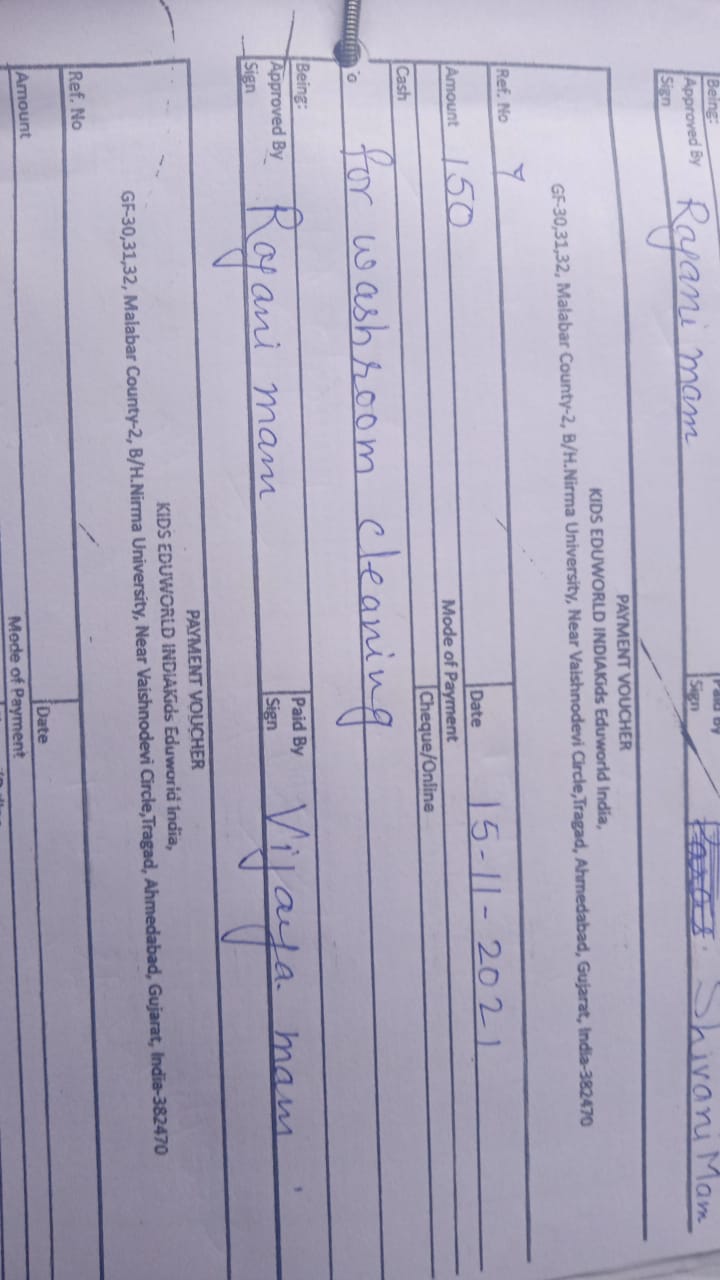 Being:
Approved By Rajani mam
Sign Sign Shivani Mam
PAYMENT VOUCHER
KIDS EDUWORLD INDIAKids Eduworld India,
GF-30,31,32, Malabar County-2, B/H.Nirma University, Near Vaishnodevi Circle,Tragad, Ahmedabad, Gujarat, India-382470
Ref. No
Date 15-11-2021
Amount 150 Mode of Payment
Cash Cheque/Online
for washroom cleaning
Being:
Approved By Rajani mam Paid By Vijaya mam
Sign Sign
PAYMENT VOUCHER
KIDS EDUWORLD INDIAKids Eduworld India,
GF-30,31,32, Malabar County-2, B/H.Nirma University, Near Vaishnodevi Circle,Tragad, Ahmedabad, Gujarat, India-382470
Ref. No
Date
Amount Mode of Payment